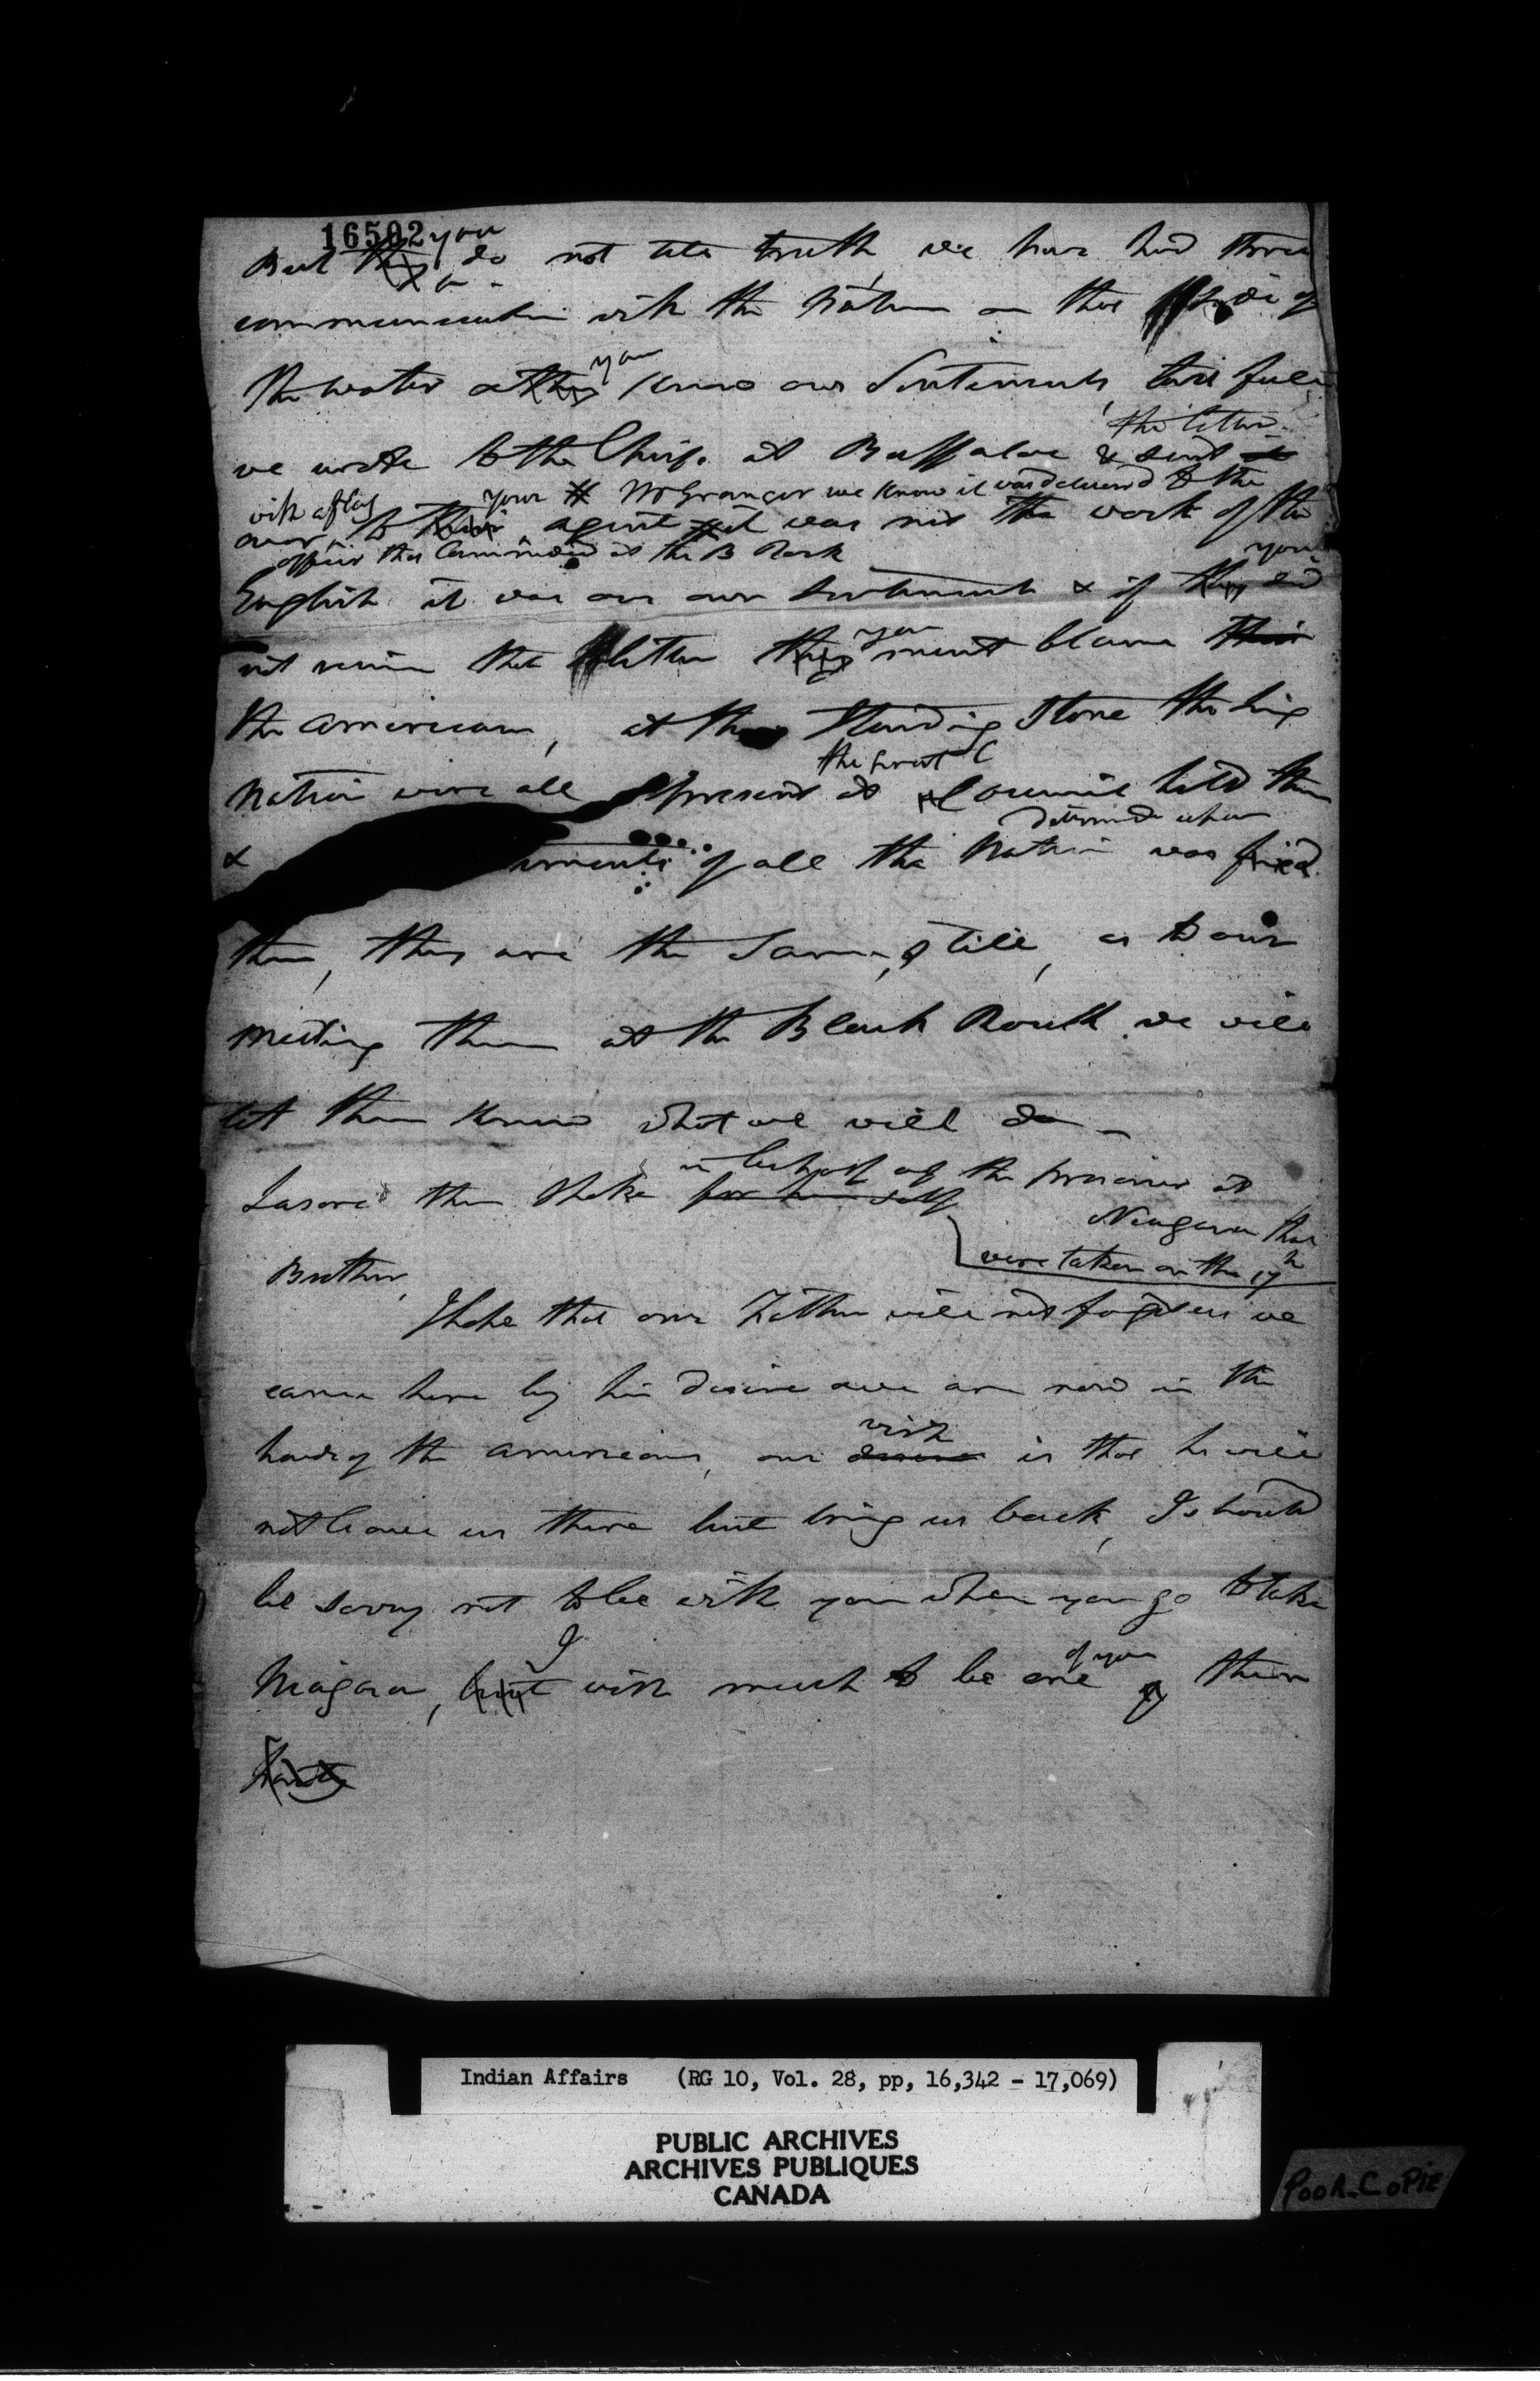 16502
But they you do not tell truth, we have had three
communication with the Nation on that side of
the water & they you know our Sentiments, last fall
we wrote to the Chiefs at Buffaloe & sent it the letter
over with a flag to their your agent Mr Granger we know it was delivered to the
officer that Commanded at the B Rock
it was not the work of the
English it was our own Sentiments & if they you did
not receive that letter they you must blame their
the americans, at the Standing Stone the
Nation were all present at the great Council held there
& of all the Nation was fixed determined upon
then, they are the same still, as to our
meeting them at the Black Rock we will
let them know what we will do –
then spoke for himself in behalf of the prisoners at
Niagara that
were taken on the 17h
Brother,
I hope that our Father will not forget us we
came here by his desire & we are now in the
hands of the americans, our desire wish is that he will
not leave us there but bring us back, I should
be sorry not to be with you when you go to take
Niagara, but I wish much to be one of you of them
Indian Affairs (RG 10, Vol. 28, pp, 16,342 - 17,069)
PUBLIC ARCHIVES
ARCHIVES PUBLIQUES
CANADA
POOR-COPIE